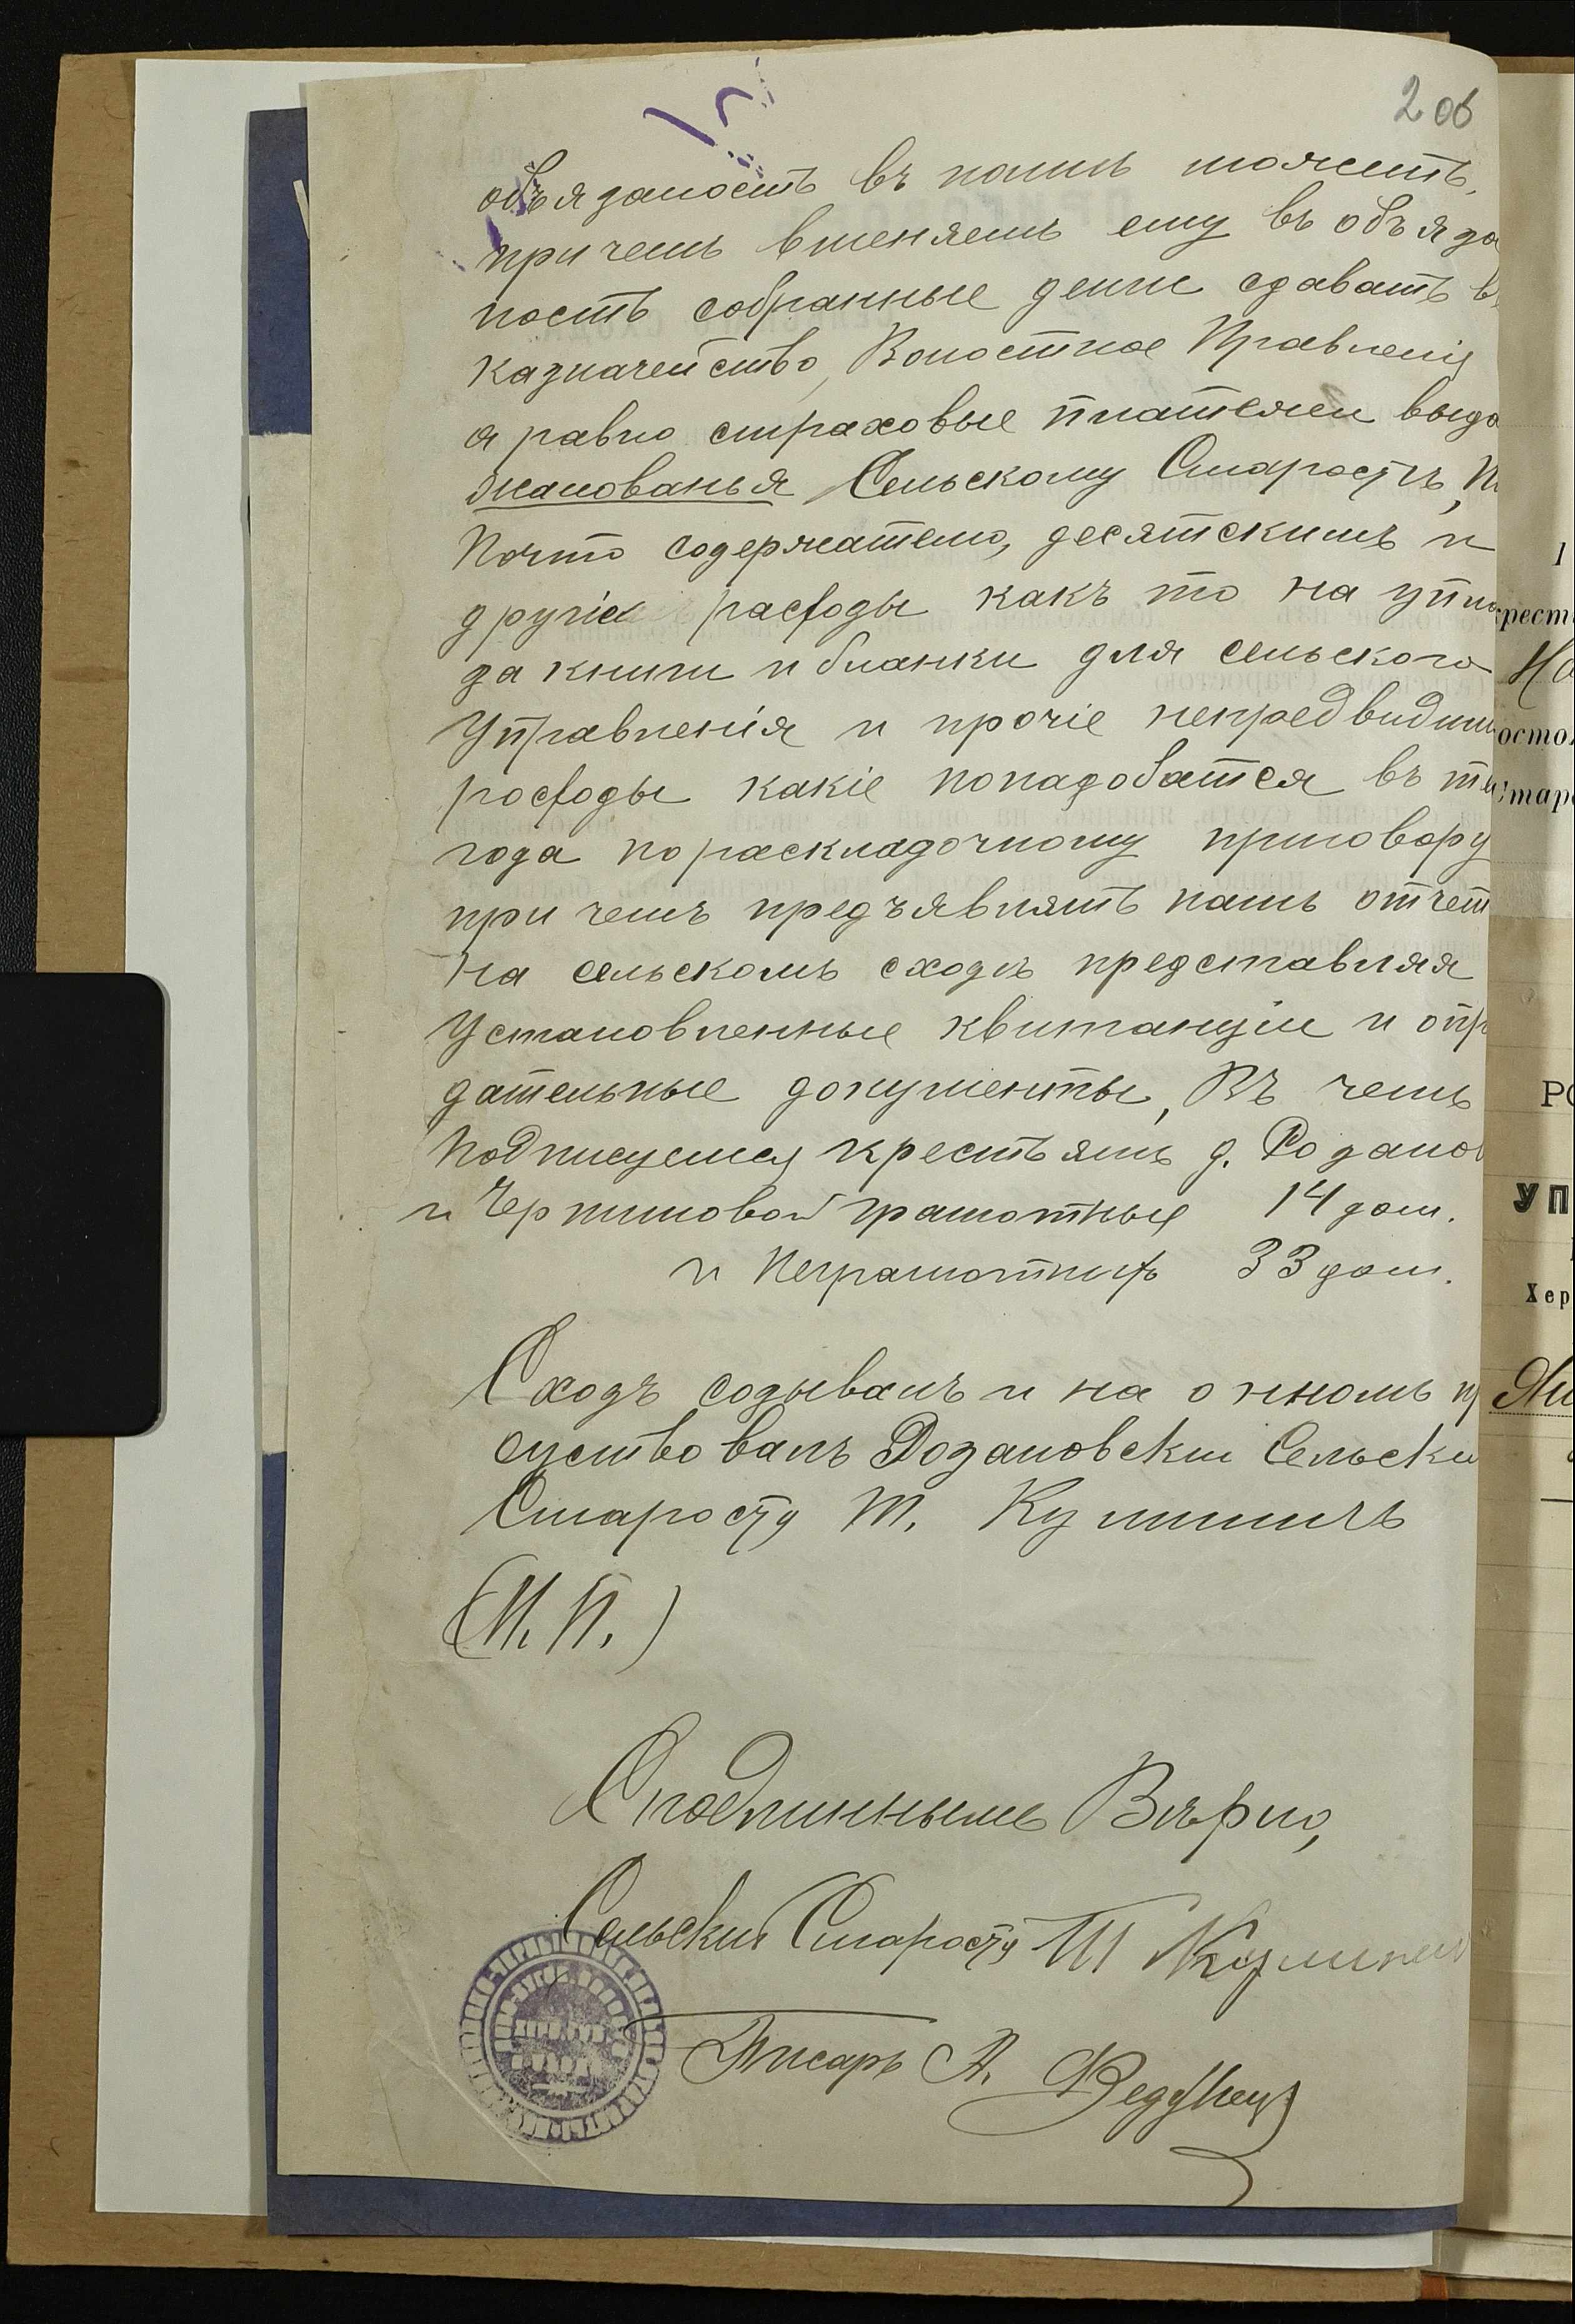 2 об
обьязаность въ полнь можетъ,
причемъ вменяемъ ему въ обьяза
ность собранные денги сдавать в
казначейство, Волостное Правленія
а равно страховые платежи выда
жалованья Сельскому Старостъ,
Почто содержателю, десятскимъ и
другіе расходы какъ то на упла
за книги и бланки для сельского
Управленія и прочіе непредвидим
росходы какіе понадобатся въ те
года по раскладочному приговору
при чемъ предъявлять намъ отчет
На сельскомъ сходъ представляя
Установленные квитанціи и опр
дательные документы, Въ чемъ
подписуемся крестьянъ д. Розанов
и Черниловой грамотные 14 дом.
и Неграмотныхъ 33 дом.
Сходъ созывалъ и на о нномъ п
суствовалъ Розановски Сельски
Староста Т. Кулиничъ
(М. П.)
С подлиннымъ Вѣрно,
Сельский Староста Т Кулинеч
Писарь А.
рест
осто
Стар
РО
УП
Хер